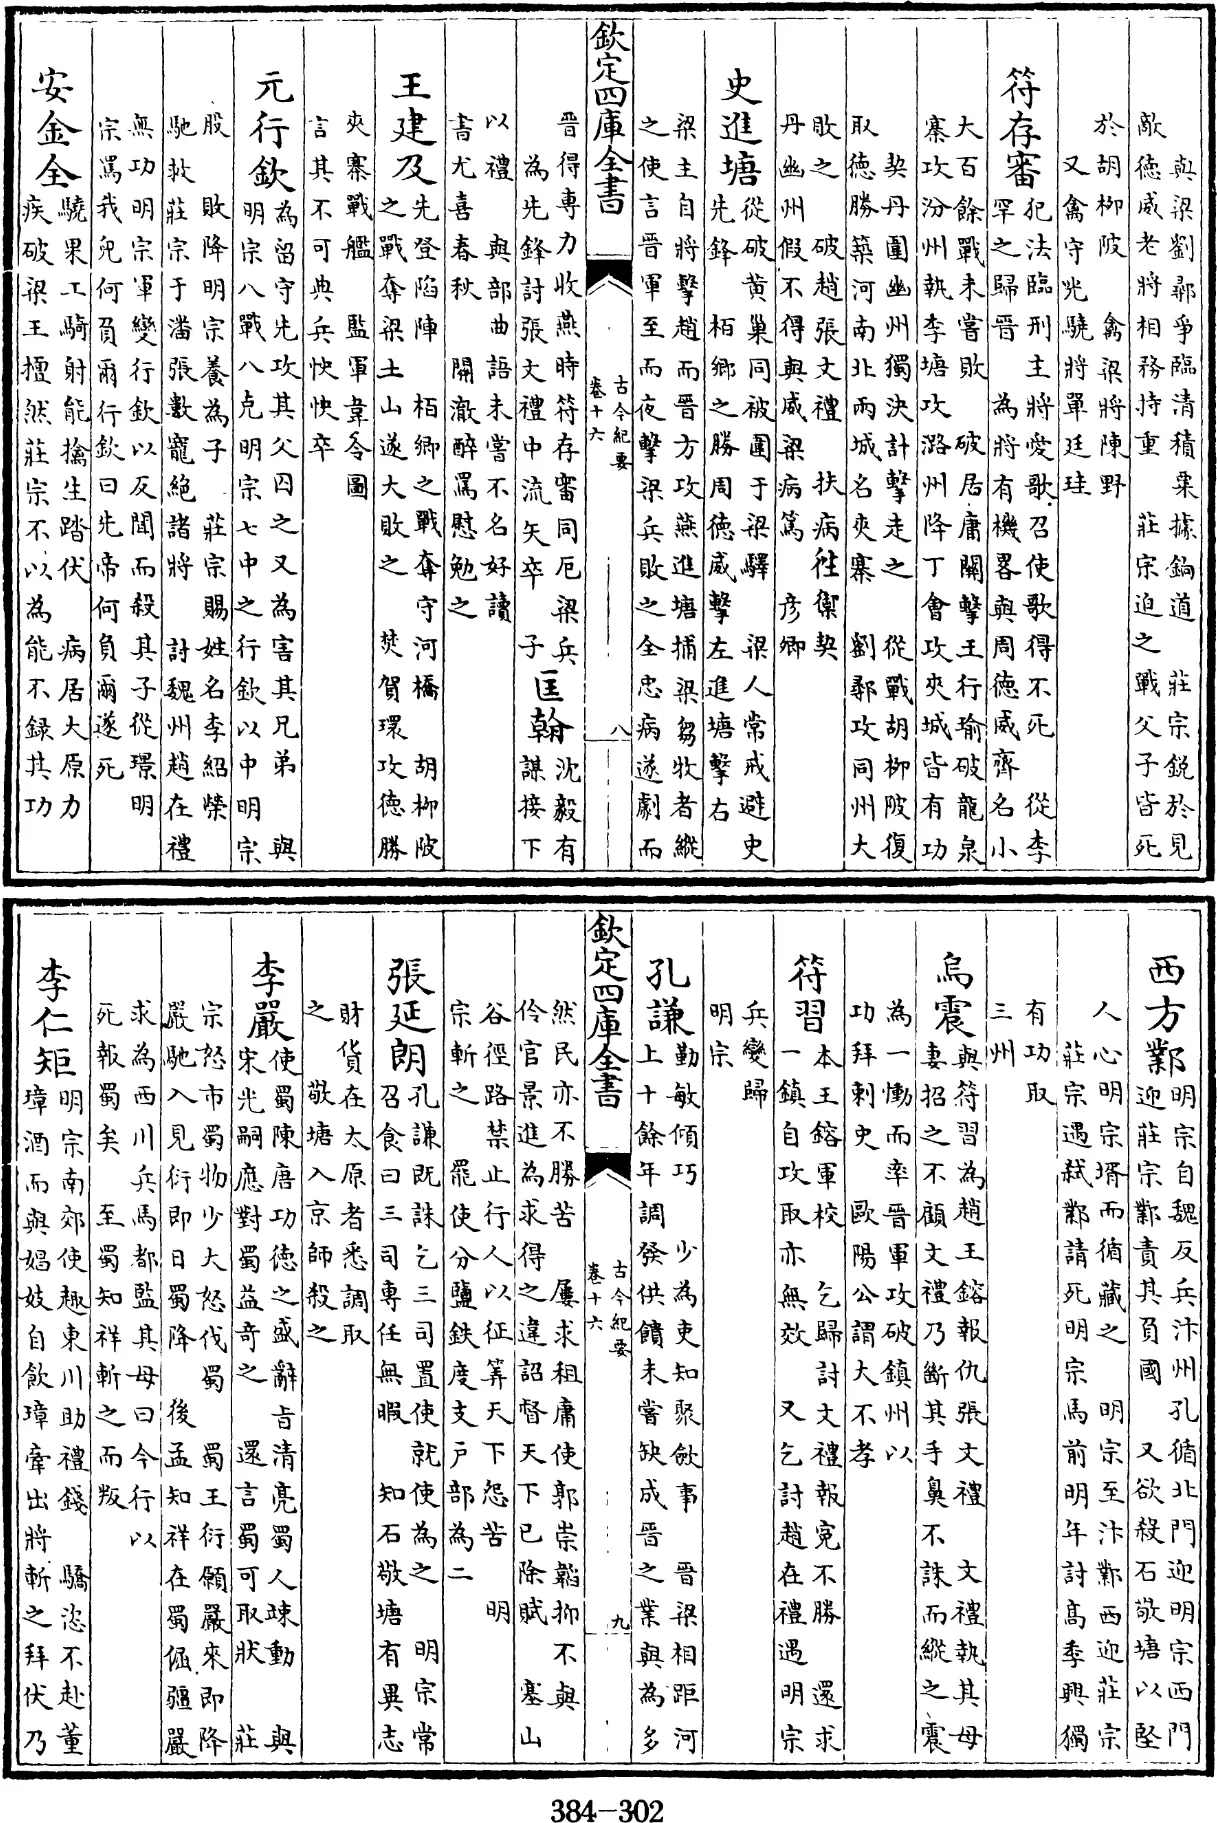 與梁劉鄩爭臨清積粟據餉道　莊宗銳於見
敵德威老將相務持重　莊宗迫之戰父子皆死
於胡柳陂　禽梁將陳野
又禽守光驍將單廷珪
符存審犯法臨刑主將愛歌召使歌得不死　從李
罕之歸晉　為將有機畧與周德威齊名小
大百餘戰未嘗敗　破居庸關擊王行瑜破龍泉
寨攻汾州執李瑭攻潞州降丁會攻夾城皆有功
契丹圍幽州獨決計擊走之　從戰胡柳陂復
取德勝築河南北兩城名夾寨　劉鄩攻同州大
敗之　破趙張文禮　扶病徃禦契
丹幽州假不得與咸梁病篤　彦卿
史進塘從破黄巢同被圍于梁驛　梁人常戒避史
先鋒　栢鄉之勝周德威擊左進塘擊右
梁主自將擊趙而晉方攻燕進塘捕梁芻牧者縱
之使言晉軍至而夜擊梁兵敗之全忠病遂劇而
欽定四庫全書
古今紀要
卷十六
八
晉得専力收燕時符存審同厄梁兵匡翰沈毅有
為先鋒討張文禮中流矢卒　子謀接下
以禮　與部曲語未嘗不名好讀
書尤喜春秋　關澈醉罵慰勉之
王建及先登陷陣　栢鄉之戰奪守河橋　胡柳陂
之戰奪梁土山遂大敗之　焚賀環攻德勝
夾寨戰艦　監軍韋令圖
言其不可典兵怏怏卒
元行欽為留守先攻其父囚之又為害其兄弟　與
明宗八戰八克明宗七中之行欽以中明宗
股　敗降明宗養為子　莊宗賜姓名李紹榮
馳救莊宗于潘張數寵絶諸將　討魏州趙在禮
無功明宗軍變行欽以反聞而殺其子從璟明
宗罵我兒何負爾行欽曰先帝何負爾遂死
安金全驍果工騎射能擒生踏伏　病居大原力
疾破梁王擅然莊宗不以為能不録其功
西方鄴明宗自魏反兵汴州孔循北門迎明宗西門
迎莊宗鄴責其負國　又欲殺石敬塘以堅
人心明宗壻而循藏之　明宗至汴鄴西迎莊宗
莊宗遇弑鄴請死明宗馬前明年討髙季興獨
有功取
三州
烏震與符習為趙王鎔報仇張文禮　文禮執其母
妻招之不顧文禮乃斷其手鼻不誅而縱之震
為一慟而率晉軍攻破鎮州以
功拜刺史　歐陽公謂大不孝
符習本王鎔軍校　乞歸討文禮報寃不勝　還求
一鎮自攻取亦無效　又乞討趙在禮遇明宗
兵變歸
明宗
孔謙勤敏傾巧　少為吏知聚歛事　晉梁相距河
上十餘年調發供饋未嘗缺成晉之業與為多
欽定四庫全書
古今紀要
卷十六
九
然民亦不勝苦　屢求租庸使郭崇韜抑不與
伶官景進為求得之違詔督天下已除賦　塞山
谷徑路禁止行人以征筭天下怨苦　明
宗斬之　罷使分鹽鉄度支户部為二
張延朗孔謙既誅乞三司置使就使為之　明宗常
召食曰三司専任無暇　知石敬塘有異志
財貨在太原者悉調取
之　敬塘入京師殺之
李嚴使蜀陳唐功德之盛辭㫖清亮蜀人竦動　與
宋光嗣應對蜀益奇之　還言蜀可取狀　莊
宗怒市蜀物少大怒伐蜀　蜀王衍願嚴來即降
嚴馳入見衍即日蜀降　後孟知祥在蜀倔彊嚴
求為西川兵馬都監其母曰今行以
死報蜀矣　至蜀知祥斬之而叛
李仁矩明宗南郊使趣東川助禮錢　驕恣不赴董
璋酒而與娼妓自飲璋牽出將斬之拜伏乃
384-302